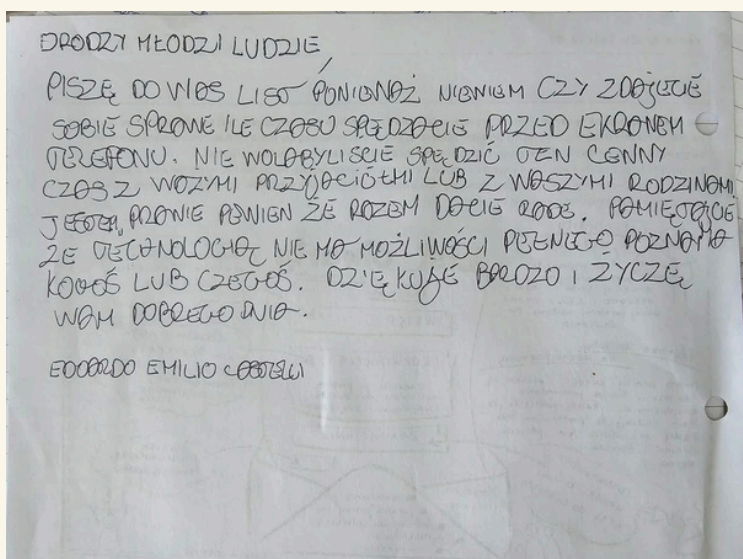 DRODZY MŁODZI LUDZIE,
PISZĘ DO WAS LIST PONIEWAŻ NIEWIEM CZY ZDAJECIE
SOBIE SPRAWE ILE CZASU SPĘDZACIE PRZED EKRANEM
TELEFONU. NIE WOLABYLISCIE SPĘDZIĆ TEN CENNY
CZAS Z WAZYMI PRZYJACIÓŁMI LUB Z WASZYMI RODZINAMI.
JESTEM PRAWIE PEWIEN ŻE RAZEM DACIE RADE. PAMIĘTAJCIE
ŻE TECHNOLOGIĄ NIE MA MOŻLIWOŚCI PEŁNEGO POZNANIA
KOGOŚ LUB CZEGOŚ. DZIĘKUJE BARDZO I ŻYCZĘ
WAM DOBREGO DNIA.
EDOARDO EMILIO